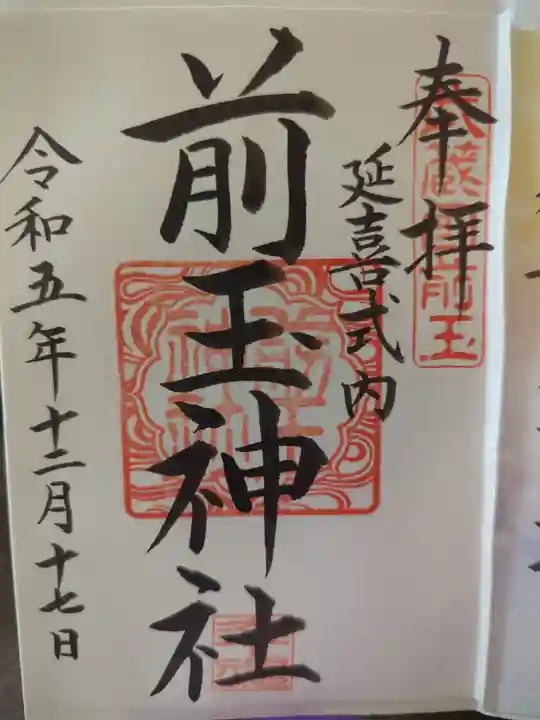 奉拝
延喜式内
前玉神社
令和五年十二月十七日